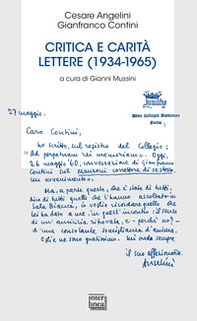 Cesare Angelini
Gianfranco Contini
CRITICA E CARITÀ
LETTERE (1934-1965)
a cura di Gianni Mussini
27 maggio.
Caro Contini,
ho scritto, sul registro del Collegio:
"Ad perpetuam rei memoriam". Oggi,
26 maggio '60, conversazione di Gianfranco
Contini sul Manzoni correttore di se stesso.
Un avvenimento".
Ma, a parte questo, che è stato di tutti,
di tutti quelli che l'hanno ascoltato in
Sala Bianca, io voglio ricordare quello che
lei ha dato a me, in quest' incontro: il senso
di un'amicizia ritrovata, e - perché no? -
a una costante
E di ciò sono gratissimo. Mi creda sempre
il suo affezionato
Angelini
inter
linea